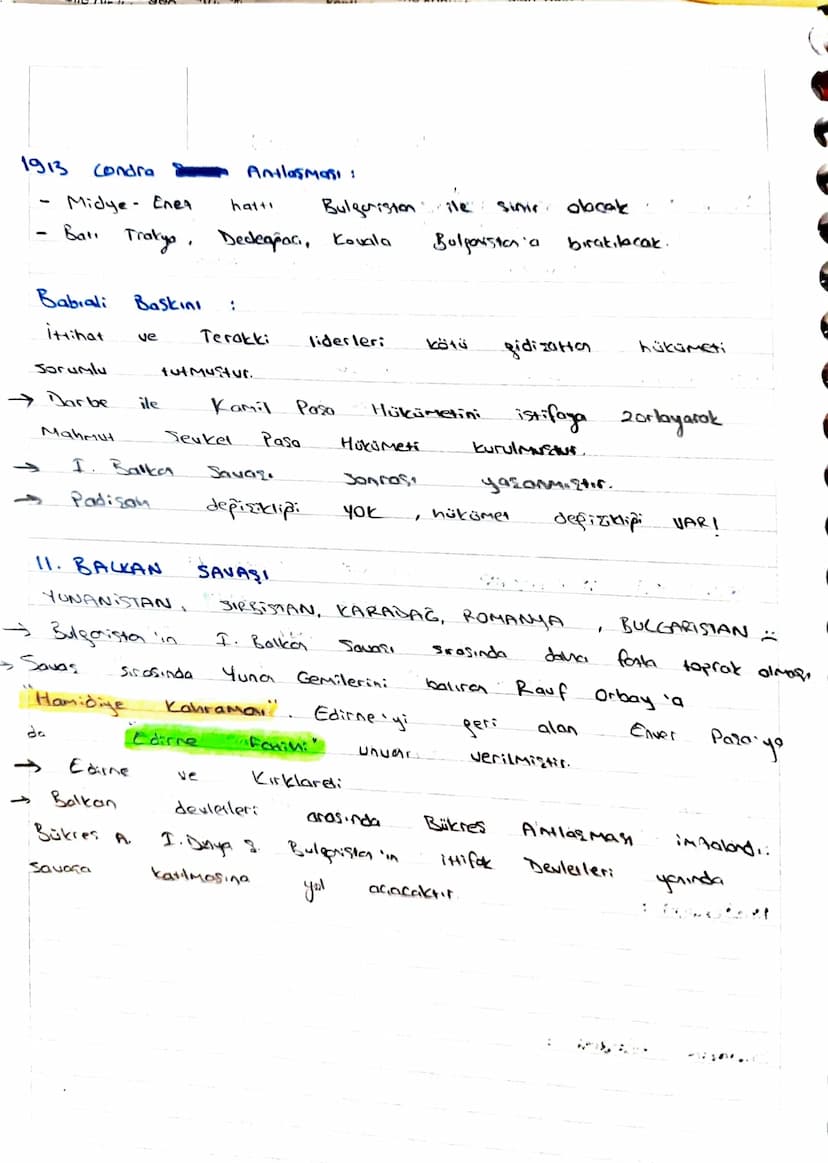 1913 Londra Antlaşması :
- Midye - Enez hattı Bulgaristan ile sınır olacak
- Batı Trakya, Dedeağacı, Kavala Bulgaristan'a bırakılacak.
Babıali Baskını :
İttihat ve Terakki liderleri kötü gidişattan hükümeti
sorumlu tutmuştur.
→ Darbe ile Kamil Paşa Hükümetini istifaya zorlayarak
Mahmut Şevket Paşa Hükümeti kurulmuştur.
→ I. Balkan Savaşı sonrası yaşanmıştır.
→ Padişah değişikliği YOK , hükümet değişikliği VAR!
II. BALKAN SAVAŞI
YUNANİSTAN, SIRBİSTAN, KARADAĞ, ROMANYA , BULGARISTAN
→ Bulgaristan'ın I. Balkan Savaşı sırasında daha fazla toprak olması
→ Savaş sırasında Yunan Gemilerini batıran Rauf Orbay'a
"Hamidiye Kahramanı". Edirne'yi geri alan Enver Paşa'ya
da "Edirne Fatihi" unvanı verilmiştir.
→ Edirne ve Kırklareli
→ Balkan devletleri arasında Bükreş Antlaşması imzalandı.
Bükreş A. I. Dünya S. Bulgaristan'ın ittifak Devletleri yanında
savaşa katılmasına yol açacaktır